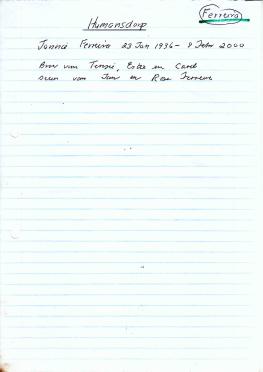 Ferreira
Humansdorp
Jannie Ferreira 23 Jan 1936 - 8 Febr 2000
Broer van Tossie, Estee en Carel
seun van Jan en Rose Ferreira